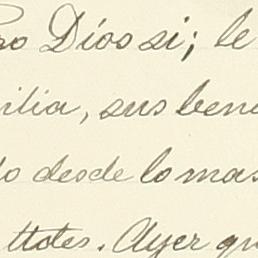 Dios si; le
ilia, sus bene
o desde lo mas
ttotes. Ayer qu